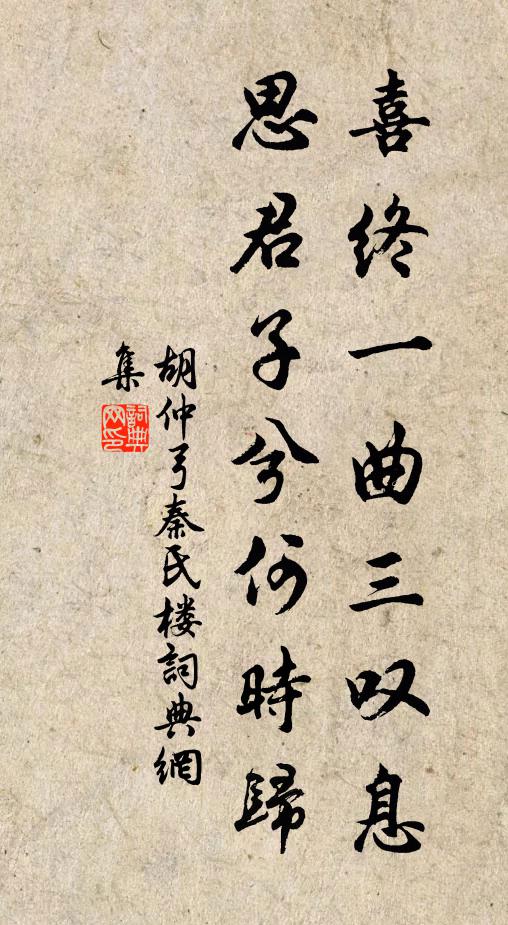 喜终一曲三叹息
思君子兮何時歸
胡仲弓秦氏楼詞典網
集
詞典
网印